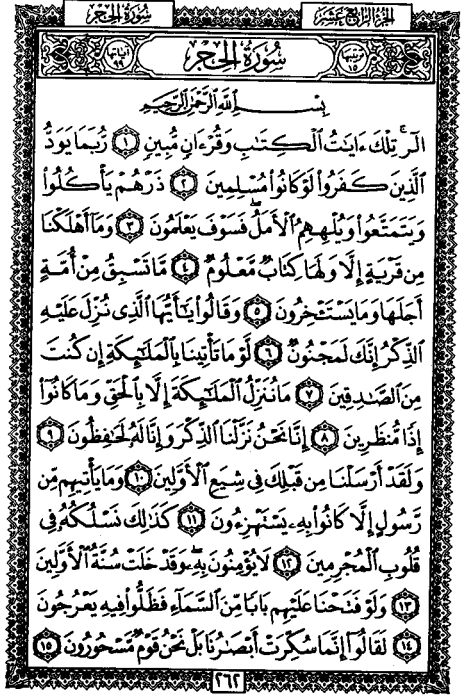 سُورَةُ الحِجْرِ
الجُزءُ الرَّابِعَ عَشَرَ
سُورَةُ الحِجْرِ
ترتيبها ١٥
آياتها ٩٩
بِسْمِ ٱللَّهِ ٱلرَّحْمَٰنِ ٱلرَّحِيمِ
الٓر ۚ تِلْكَ ءَايَٰتُ ٱلْكِتَٰبِ وَقُرْءَانٍ مُّبِينٍ ١ رُّبَمَا يَوَدُّ
ٱلَّذِينَ كَفَرُوا۟ لَوْ كَانُوا۟ مُسْلِمِينَ ٢ ذَرْهُمْ يَأْكُلُوا۟
وَيَتَمَتَّعُوا۟ وَيُلْهِهِمُ ٱلْأَمَلُ ۖ فَسَوْفَ يَعْلَمُونَ ٣ وَمَآ أَهْلَكْنَا
مِن قَرْيَةٍ إِلَّا وَلَهَا كِتَابٌ مَّعْلُومٌ ٤ مَّا تَسْبِقُ مِنْ أُمَّةٍ
أَجَلَهَا وَمَا يَسْتَـْٔخِرُونَ ٥ وَقَالُوا۟ يَٰٓأَيُّهَا ٱلَّذِى نُزِّلَ عَلَيْهِ
ٱلذِّكْرُ إِنَّكَ لَمَجْنُونٌ ٦ لَّوْ مَا تَأْتِينَا بِٱلْمَلَٰٓئِكَةِ إِن كُنتَ
مِنَ ٱلصَّٰدِقِينَ ٧ مَا نُنَزِّلُ ٱلْمَلَٰٓئِكَةَ إِلَّا بِٱلْحَقِّ وَمَا كَانُوٓا۟
إِذًا مُّنظَرِينَ ٨ إِنَّا نَحْنُ نَزَّلْنَا ٱلذِّكْرَ وَإِنَّا لَهُۥ لَحَٰفِظُونَ ٩
وَلَقَدْ أَرْسَلْنَا مِن قَبْلِكَ فِى شِيَعِ ٱلْأَوَّلِينَ ١٠ وَمَا يَأْتِيهِم مِّن
رَّسُولٍ إِلَّا كَانُوا۟ بِهِۦ يَسْتَهْزِءُونَ ١١ كَذَٰلِكَ نَسْلُكُهُۥ فِى
قُلُوبِ ٱلْمُجْرِمِينَ ١٢ لَا يُؤْمِنُونَ بِهِۦ ۖ وَقَدْ خَلَتْ سُنَّةُ ٱلْأَوَّلِينَ
١٣ وَلَوْ فَتَحْنَا عَلَيْهِم بَابًا مِّنَ ٱلسَّمَآءِ فَظَلُّوا۟ فِيهِ يَعْرُجُونَ
١٤ لَقَالُوٓا۟ إِنَّمَا سُكِّرَتْ أَبْصَٰرُنَا بَلْ نَحْنُ قَوْمٌ مَّسْحُورُونَ ١٥
٢٦٢